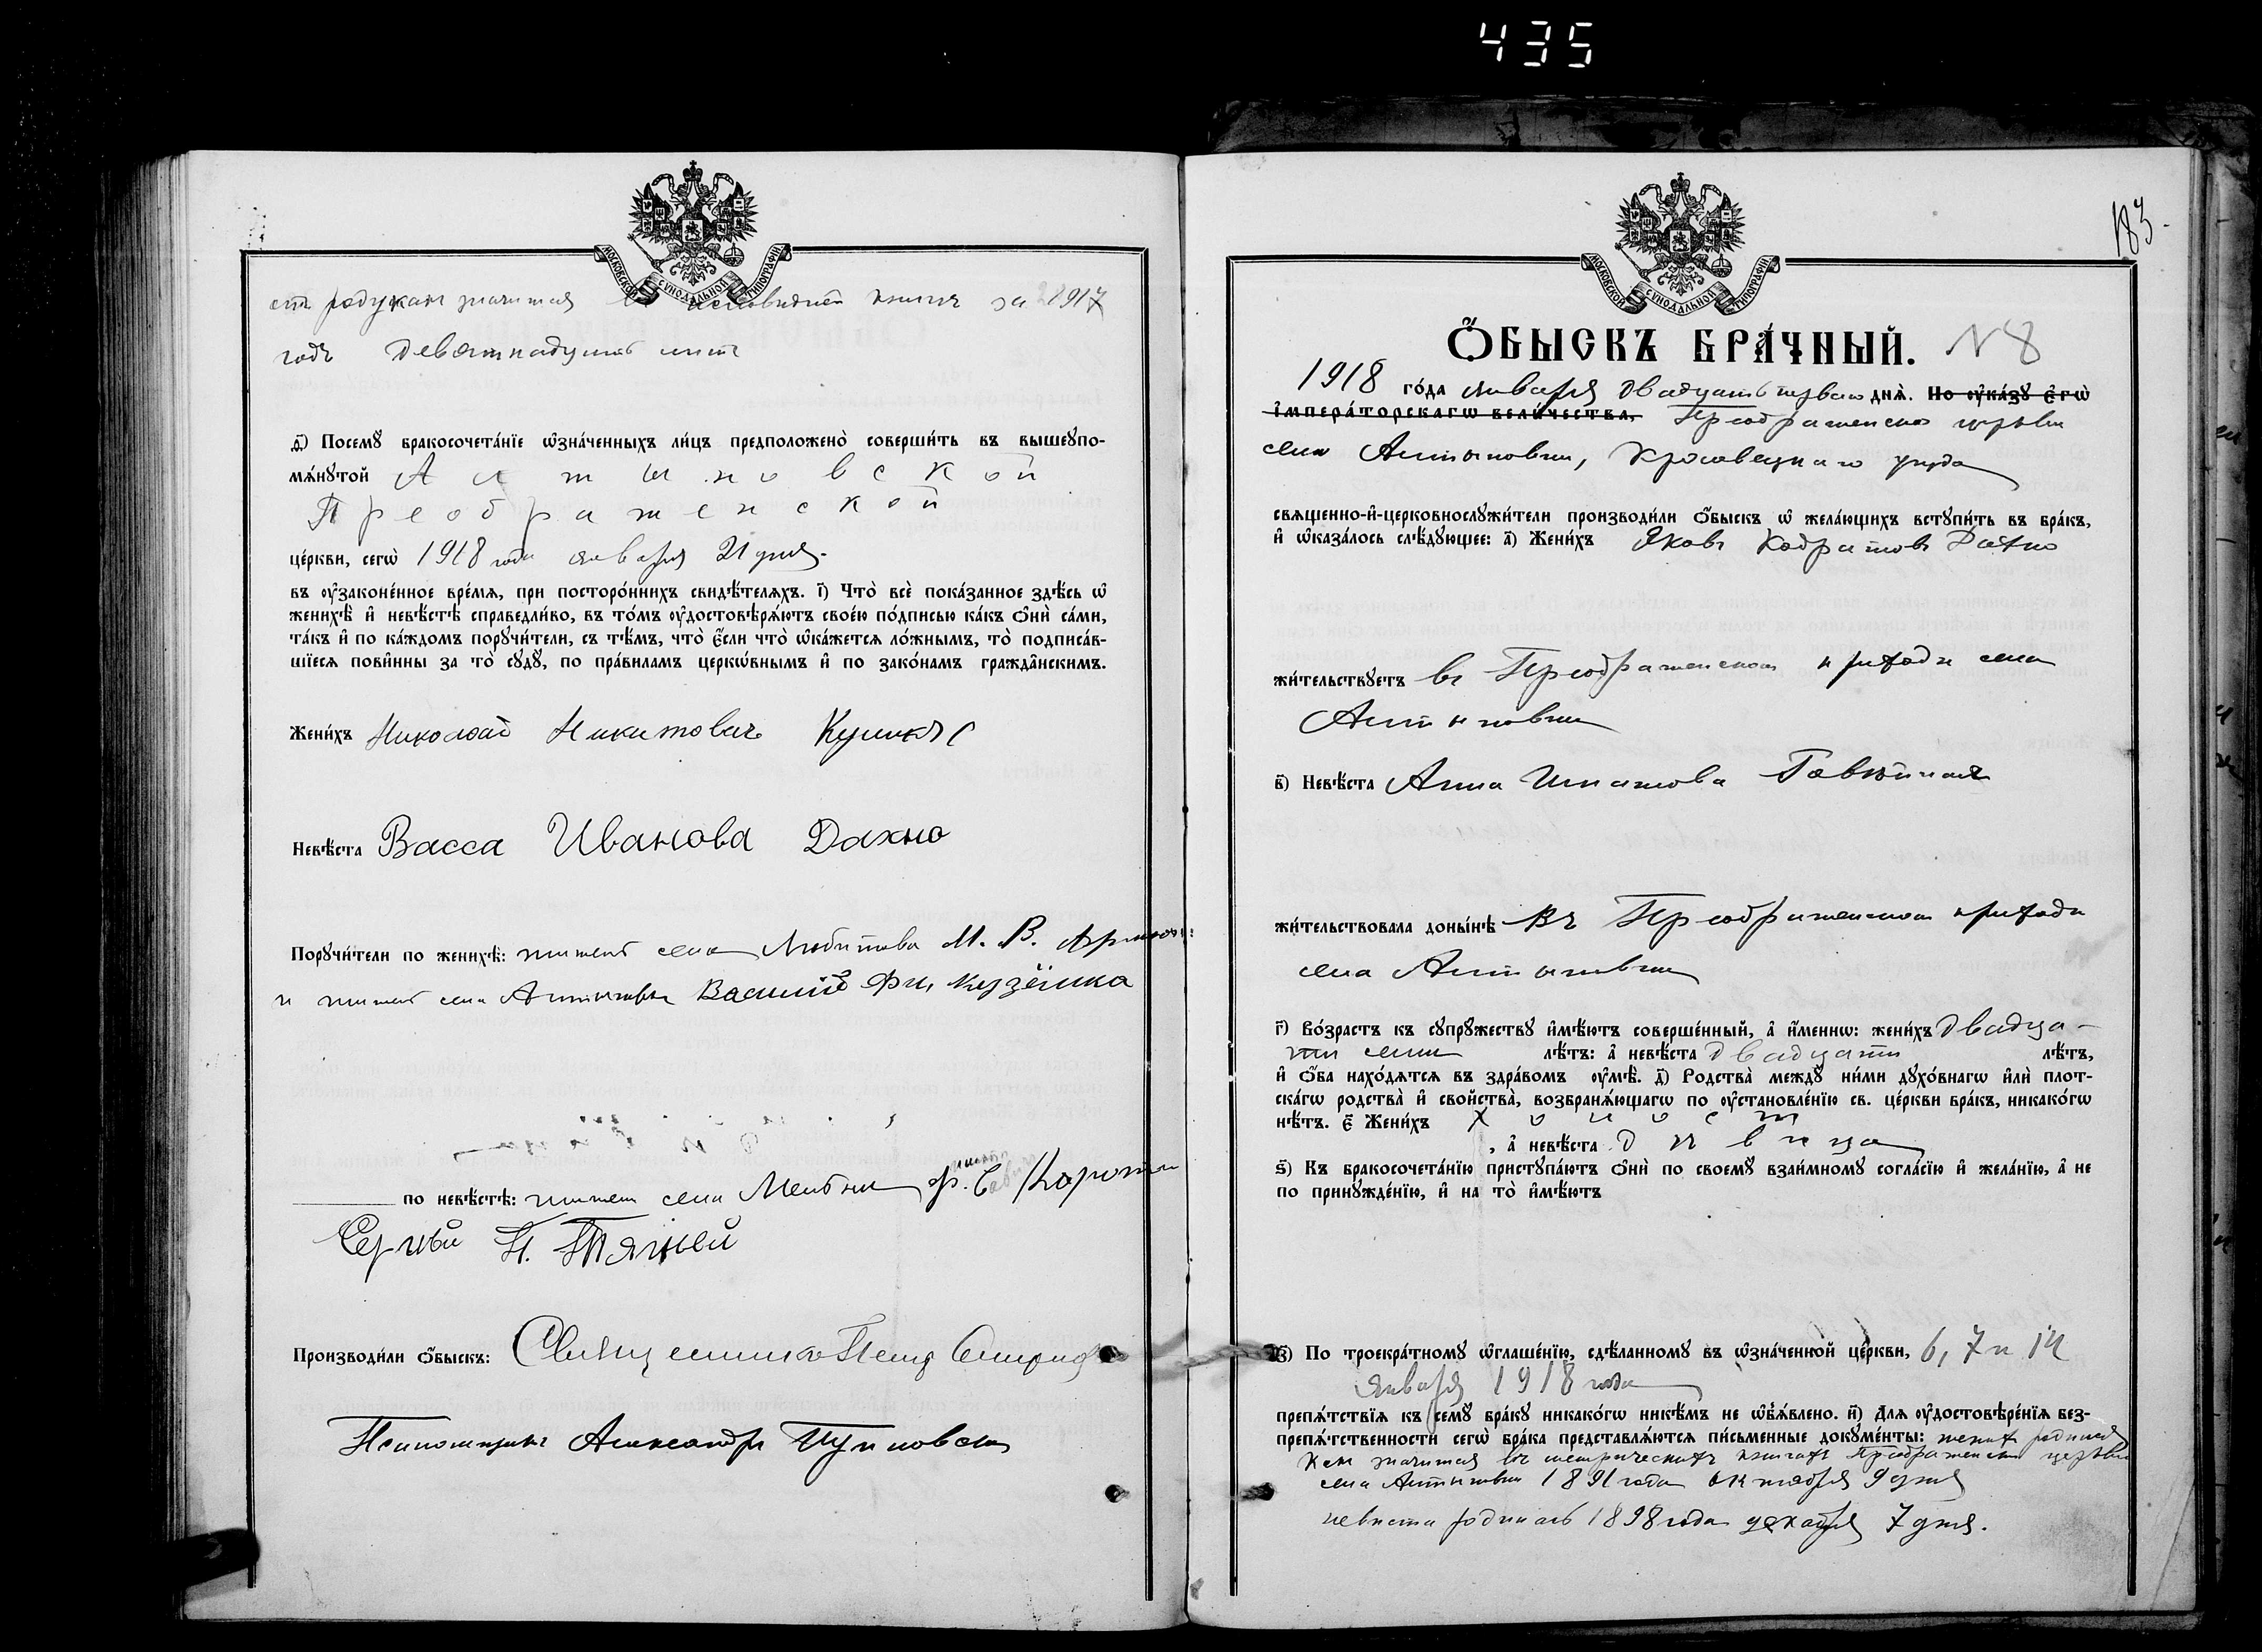 435
МОСКОВСКОЙ СУНОДАЛЬНОЙ ТИПОГРАФІИ
значится въ исповѣдной книгѣ за 1917
годъ девятнадцать лѣтъ
д҃) Посемꙋ бракосочета́нїе ѡ҆зна́ченныхъ ли́цъ предположено̀ соверши́ть въ вышеꙋпо-
мѧ́нꙋтой Алтыновской
Преображенской
це́ркви, сегѡ̀ 1918 года января 21 дня.
въ ᲂу҆законе́нное вре́мѧ, при посторо́ннихъ свидѣ́телѧхъ. і҃) Что̀ всѐ пока́занное здѣ́сь ѡ҆
женихѣ̀ и҆ невѣ́стѣ справедли́во, въ то́мъ ᲂу҆достовѣрѧ́ютъ свое́ю по́дписью ка́къ ѻ҆нѝ са́ми,
та́къ и҆ по ка́ждомъ порꙋчи́тели, съ тѣ́мъ, что̀ є҆́сли что̀ ѡ҆ка́жетсѧ ло́жнымъ, то̀ подписа́в-
шїесѧ пови́нны за то̀ сꙋдꙋ̀, по пра́виламъ церко́внымъ и҆ по зако́намъ гражда̂нскимъ.
Жени́хъ Николай Никитовичъ
Невѣ́ста Васса Иванова Дахно
Порꙋчи́тели по женихѣ̀: житель села М. В.
и житель села Алтыновки Василій
по невѣ́стѣ: житель села Ф. С.
Сергѣй Н.
Производи́ли ѻ҆́быскъ: Священникъ
Псаломщикъ Александръ
183
МОСКОВСКОЙ СУНОДАЛЬНОЙ ТИПОГРАФІИ
Ѻ҆́БЫСКЪ БРА́ЧНЫЙ. N 8
1918 го́да января двадцать перваго днѧ̀. По ᲂу҆ка́зꙋ є҆гѡ̀
і҆мпера́торскагѡ вели́чества, Преображенской церкви
села Алтыновки, Кролевецкаго уѣзда
свѧщенно-и҆-церковнослꙋжи́тели производи́ли ѻ҆́быскъ ѡ҆ жела́ющихъ встꙋпи́ть въ бра́къ,
и҆ ѡ҆каза́лось слѣ́дꙋющее: а҃) Жени́хъ Яковъ
жи́тельствꙋетъ въ Преображенскомъ приходѣ села
Алтыновки
в҃) Невѣ́ста Анна
жи́тельствовала доны́нѣ въ Преображенскомъ приходѣ
села Алтыновки
г҃) Во́зрастъ къ сꙋпрꙋ́жествꙋ и҆мѣ́ютъ соверше́нный, а҆ и҆́меннѡ: жени́хъ двадца-
ти семи лѣ́тъ: а҆ невѣ́ста двадцати лѣ́тъ,
и҆ ѻ҆́ба нахо́дѧтсѧ въ здра́вомъ ᲂу҆мѣ̀. д҃) Родства̀ междꙋ̀ ни́ми дꙋхо́внагѡ и҆лѝ плот-
ска́гѡ родства̀ и҆ сво́йства̀, возбранѧ́ющагѡ по ᲂу҆становле́нїю св. це́ркви бра́къ, никако́гѡ
нѣ́тъ. є҃) Жени́хъ холостъ
, а҆ невѣ́ста дѣвица
ѕ҃) Къ бракосочета́нїю пристꙋпа́ютъ ѻ҆нѝ по своемꙋ̀ взаи́мномꙋ согла́сїю и҆ жела́нїю, а҆ не
по принꙋжде́нїю, и҆ на то̀ и҆мѣ́ютъ
з҃) По троекра́тномꙋ ѡ҆глаше́нїю, сдѣ́ланномꙋ въ ѡ҆зна́ченной це́ркви, 6, 7 и 14
января 1918 года
препѧ́тствїѧ къ семꙋ̀ бра́кꙋ никако́гѡ никѣ́мъ не ѡ҆б̾ѧ́влено. и҃) Длѧ ᲂу҆достовѣре́нїѧ без-
препѧ́тственности сегѡ̀ бра́ка представлѧ́ютсѧ пи́сьменные докꙋме́нты: женихъ родился
какъ значится въ метрическихъ книгахъ Преображенской церкви
села Алтыновки 1891 года октября 9 дня
невѣста родилась 1898 года декабря 7 дня.